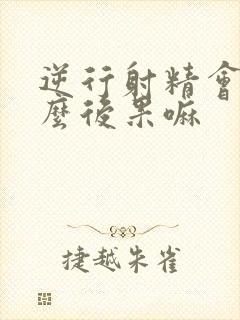 逆行射精會
麼後果嘛
捷越朱雀